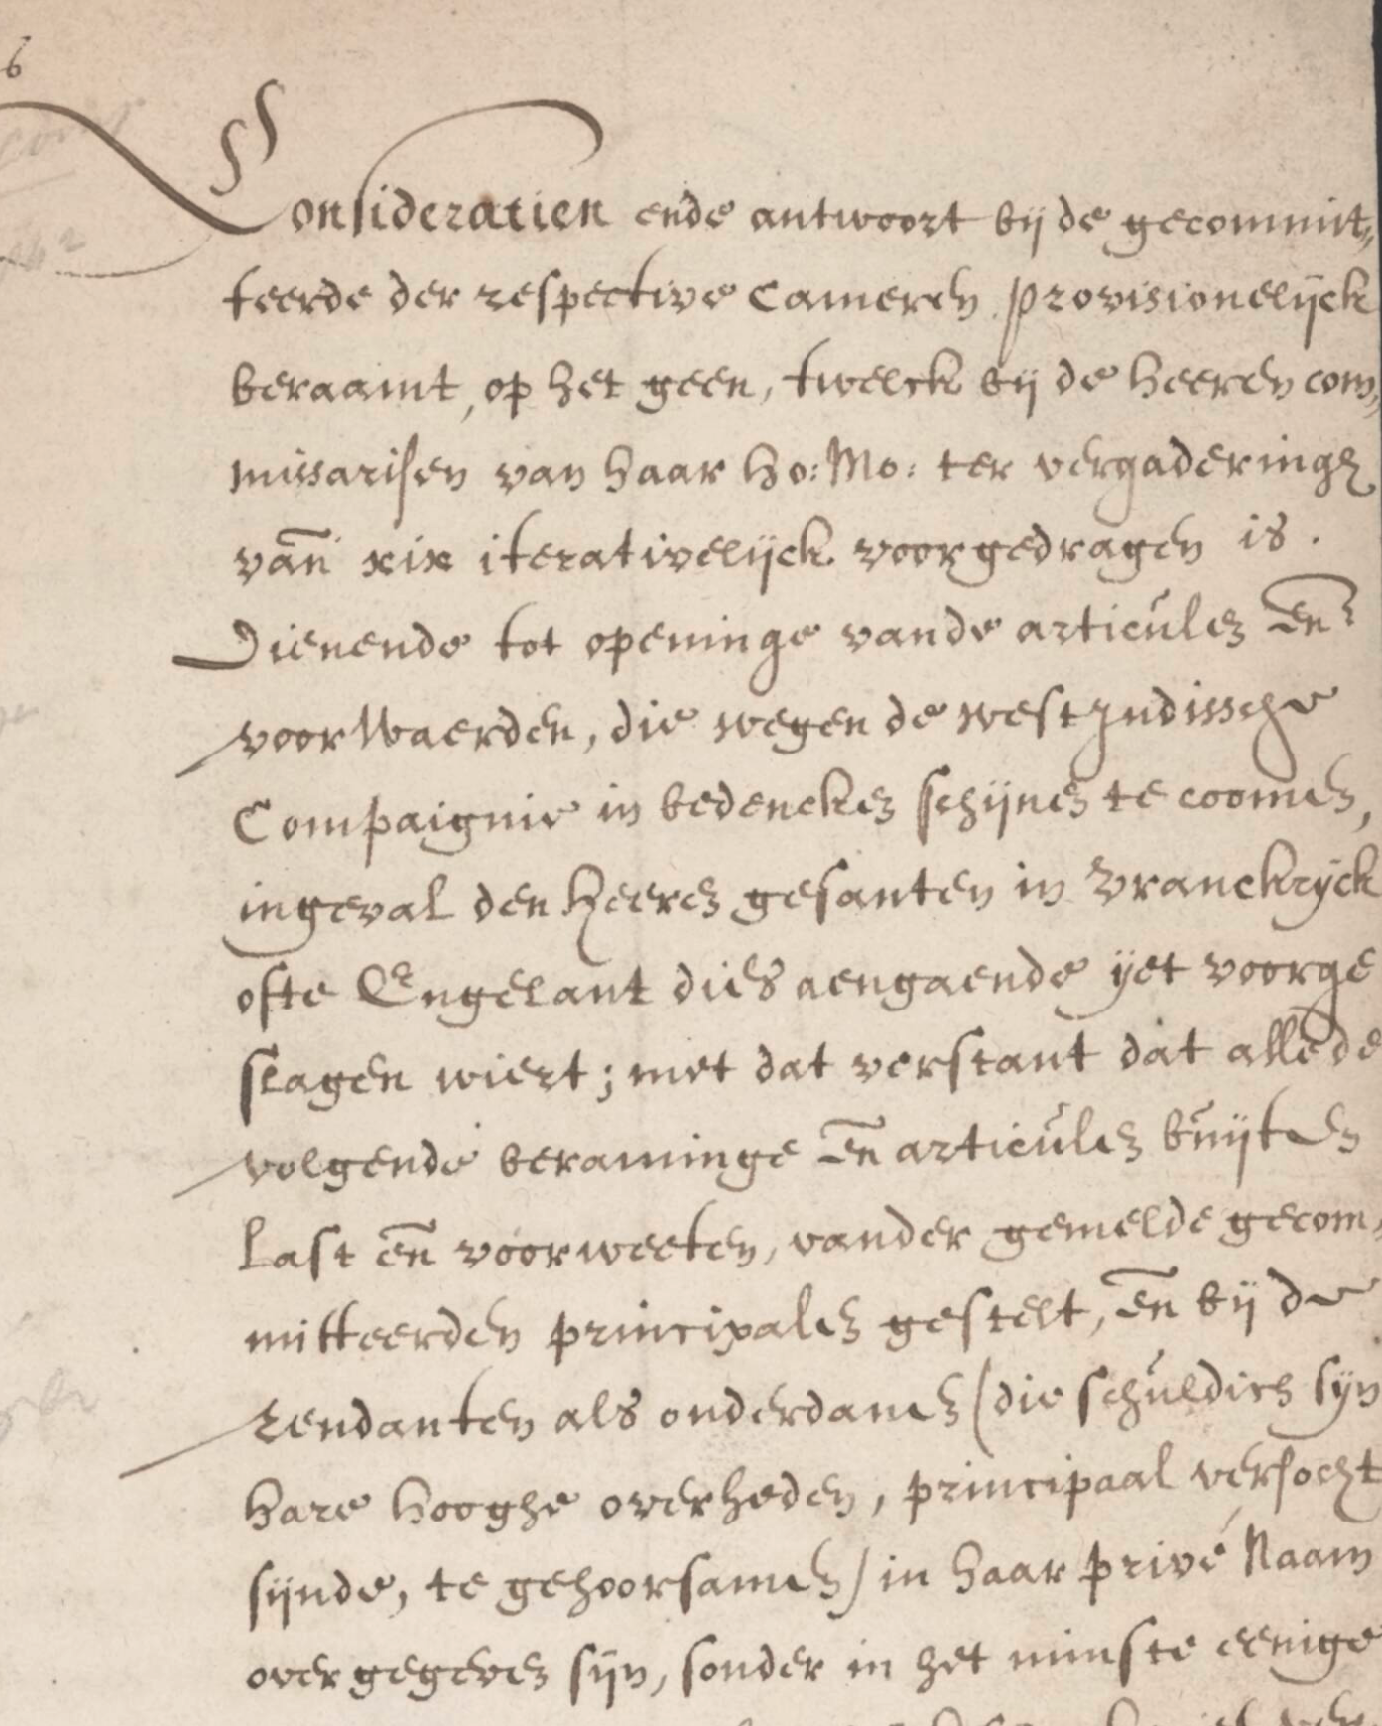 6
Consideratien ende antwoort bij de gecommit„
teerde der respective Cameren provisionelijck
beraamt, op het geen, twelck bij de heeren com„
missarisen van haar Ho: Mo: ter vergaderinge
van xix iterativelijck voorgedragen is.
Dienende tot openinge vande articulen en
voorwaerden, die wegen de westindissche
Compaignie in bedencken schijnen te coomen,
ingeval den heeren gesanten in Vranckrijck
ofte Engelant dies aengaende ijet voorge
slagen wiert; met dat verstant dat alle de
volgende beraminge en articulen buijten
last en voorweeten, vander gemelde gecom„
mitteerden principalen gestelt, en bij de
rendanten als onderdanen (die schuldich sijn
hare hooghe overheden, principaal versocht
sijnde, te gehoorsamen) in haar privé Naam
overgegeven sijn, sonder in het minste eenige